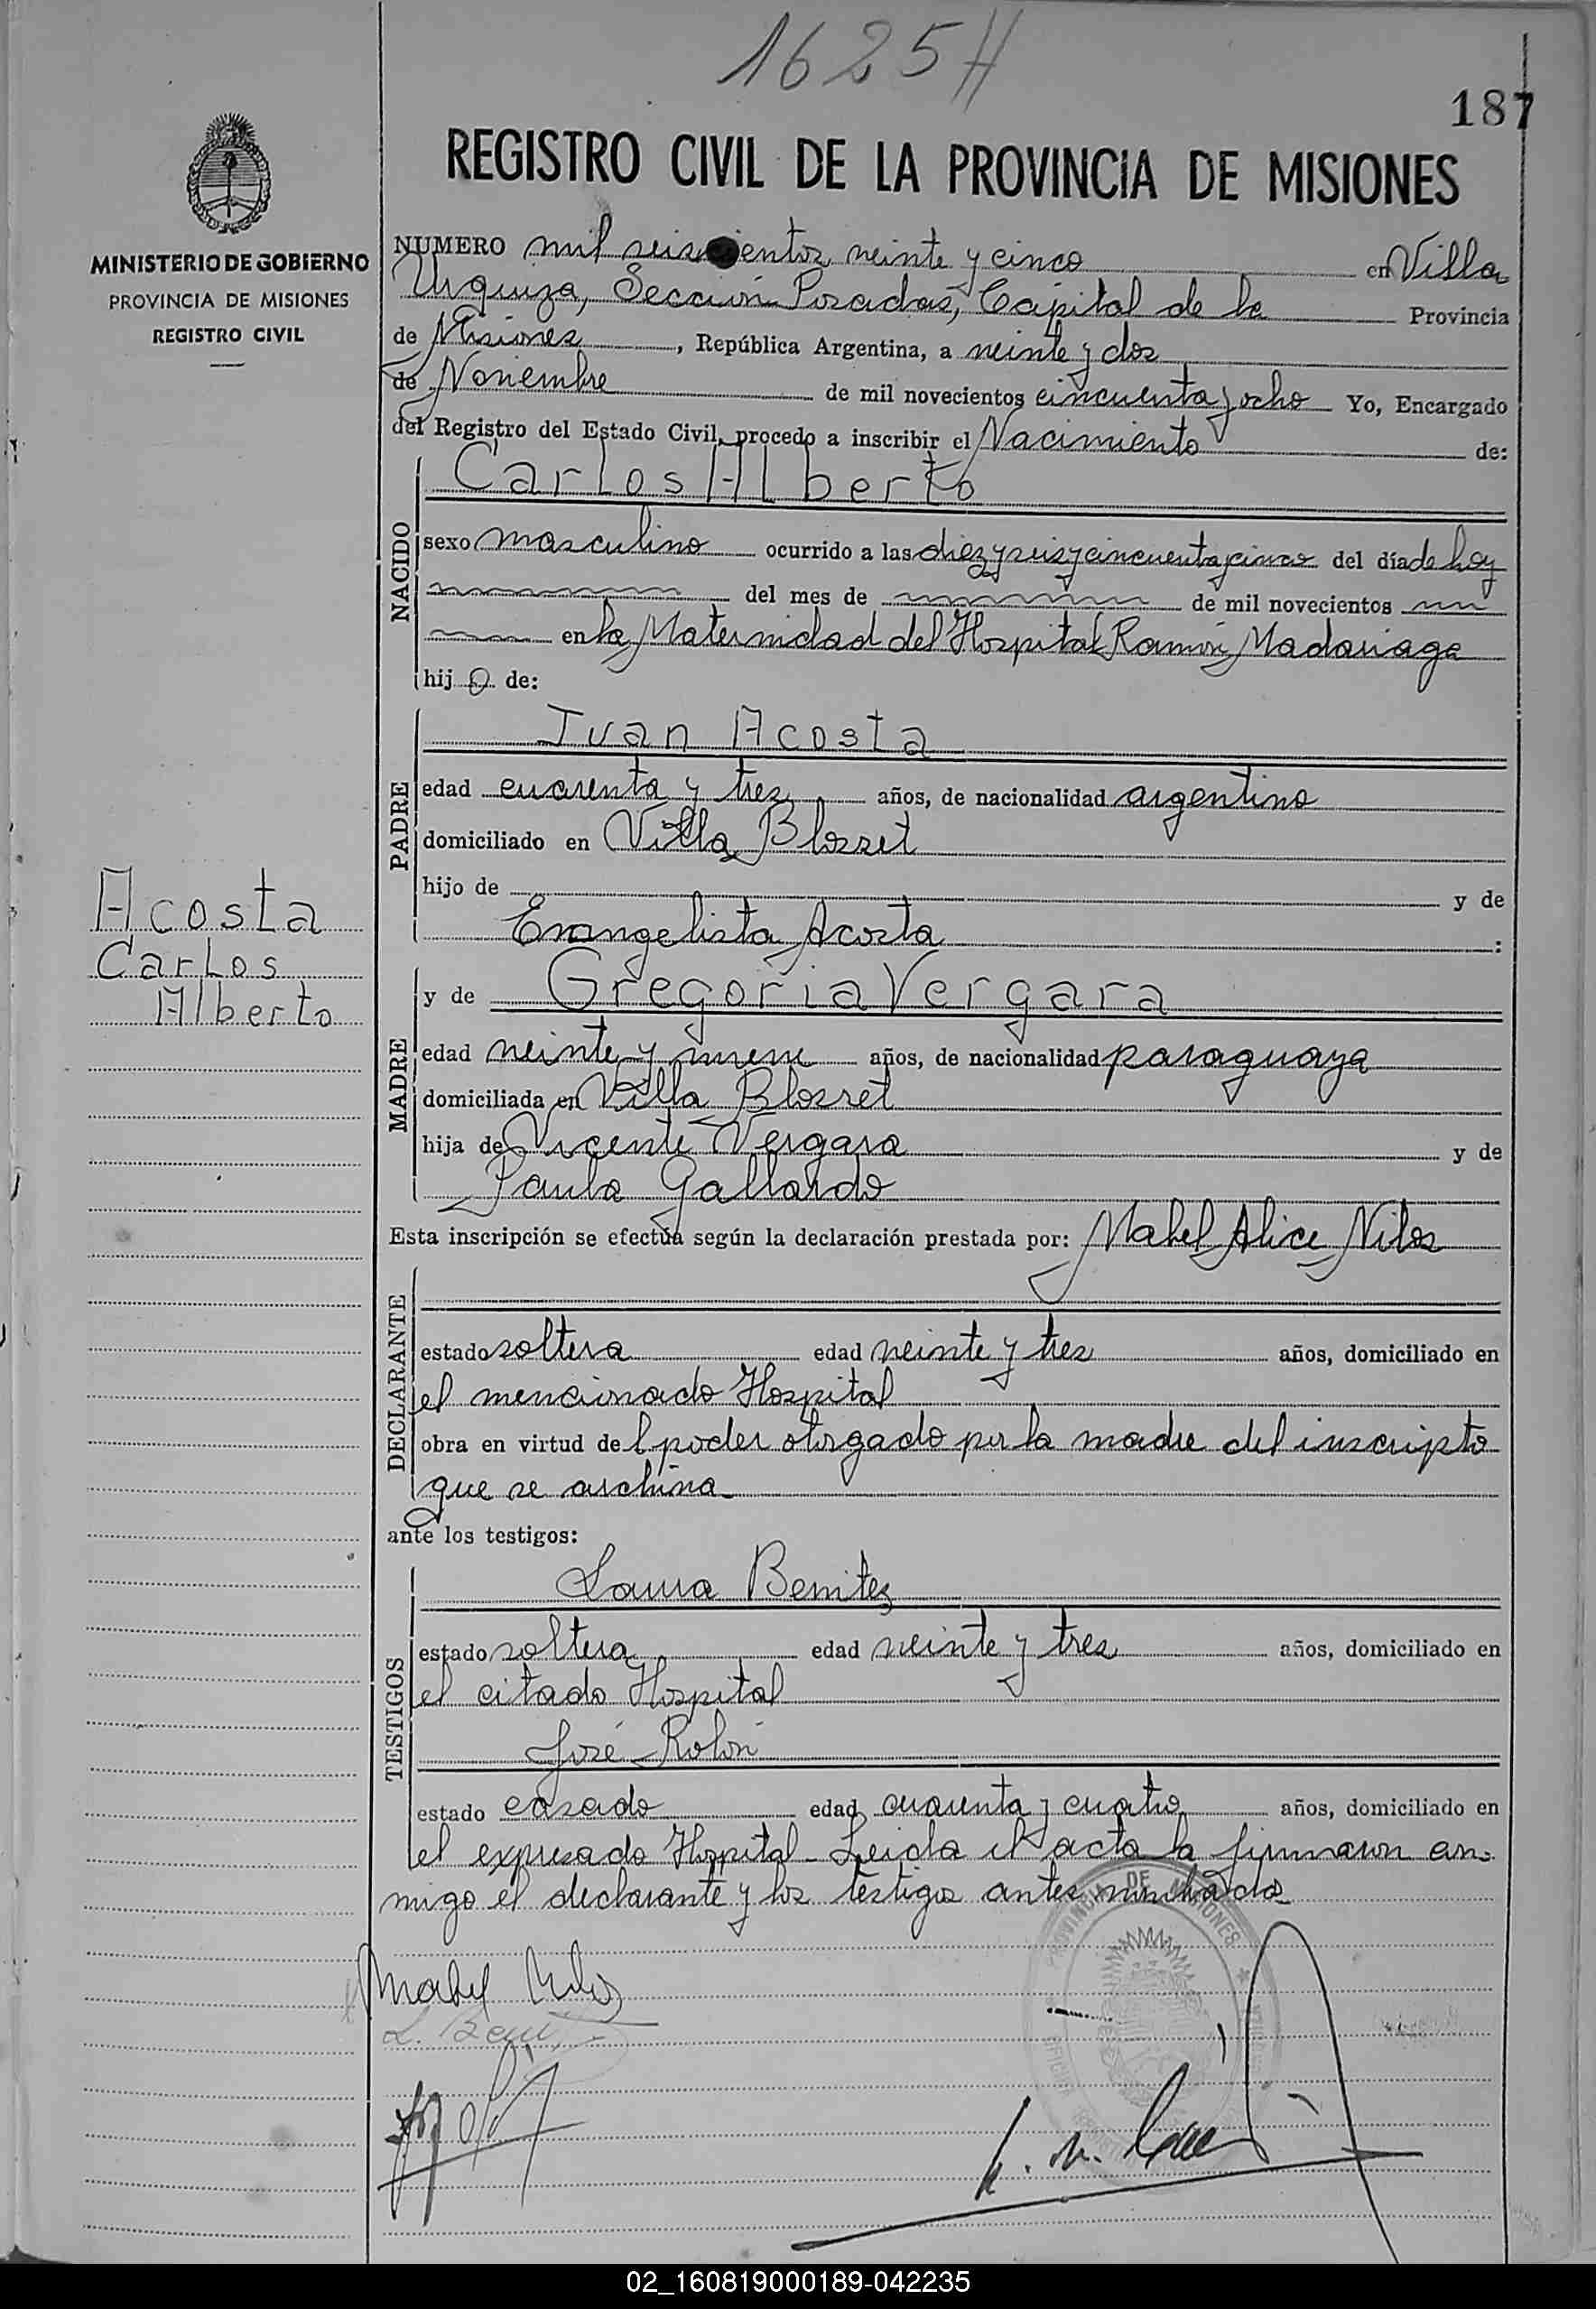 1625H
187
REGISTRO CIVIL DE LA PROVINCIA DE MISIONES
MINISTERIO DE GOBIERNO
PROVINCIA DE MISIONES
REGISTRO CIVIL
NUMERO mil seiscientos veinte y cinco en Villa
Urquiza, Sección Posadas, Capital de la Provincia
de Misiones, República Argentina, a veinte y dos
de Noviembre de mil novecientos cincuenta y ocho Yo, Encargado
del Registro del Estado Civil, procedo a inscribir el Nacimiento de:
NACIDO
Carlos Alberto
sexo masculino ocurrido a las diez y seis y cincuenta y cinco del día de hoy
del mes de de mil novecientos
en la Maternidad del Hospital Ramón Madariaga
hijo de:
PADRE
Juan Acosta
edad cuarenta y tres años, de nacionalidad argentino
domiciliado en Villa Blosset
hijo de y de
Evangelista Acosta :
Acosta
Carlos
Alberto
MADRE
y de Gregoria Vergara
edad veinte y nueve años, de nacionalidad paraguaya
domiciliada en Villa Blosset
hija de Vicente Vergara y de
Paula Gallardo
Esta inscripción se efectúa según la declaración prestada por: Mabel Alice Nilos
DECLARANTE
estado soltera edad veinte y tres años, domiciliado en
el mencionado Hospital
obra en virtud del poder otorgado por la madre del inscripto
que se archiva
ante los testigos:
TESTIGOS
Laura Benitez
estado soltera edad veinte y tres años, domiciliado en
el citado Hospital
José Rolón
estado casado edad cuarenta y cuatro años, domiciliado en
el expresado Hospital - Leida el acta la firmaron con-
migo el declarante y los testigos antes nombrados
PROVINCIA DE MISIONES
Mabel Nilos
L. Benitez
02_160819000189-042235